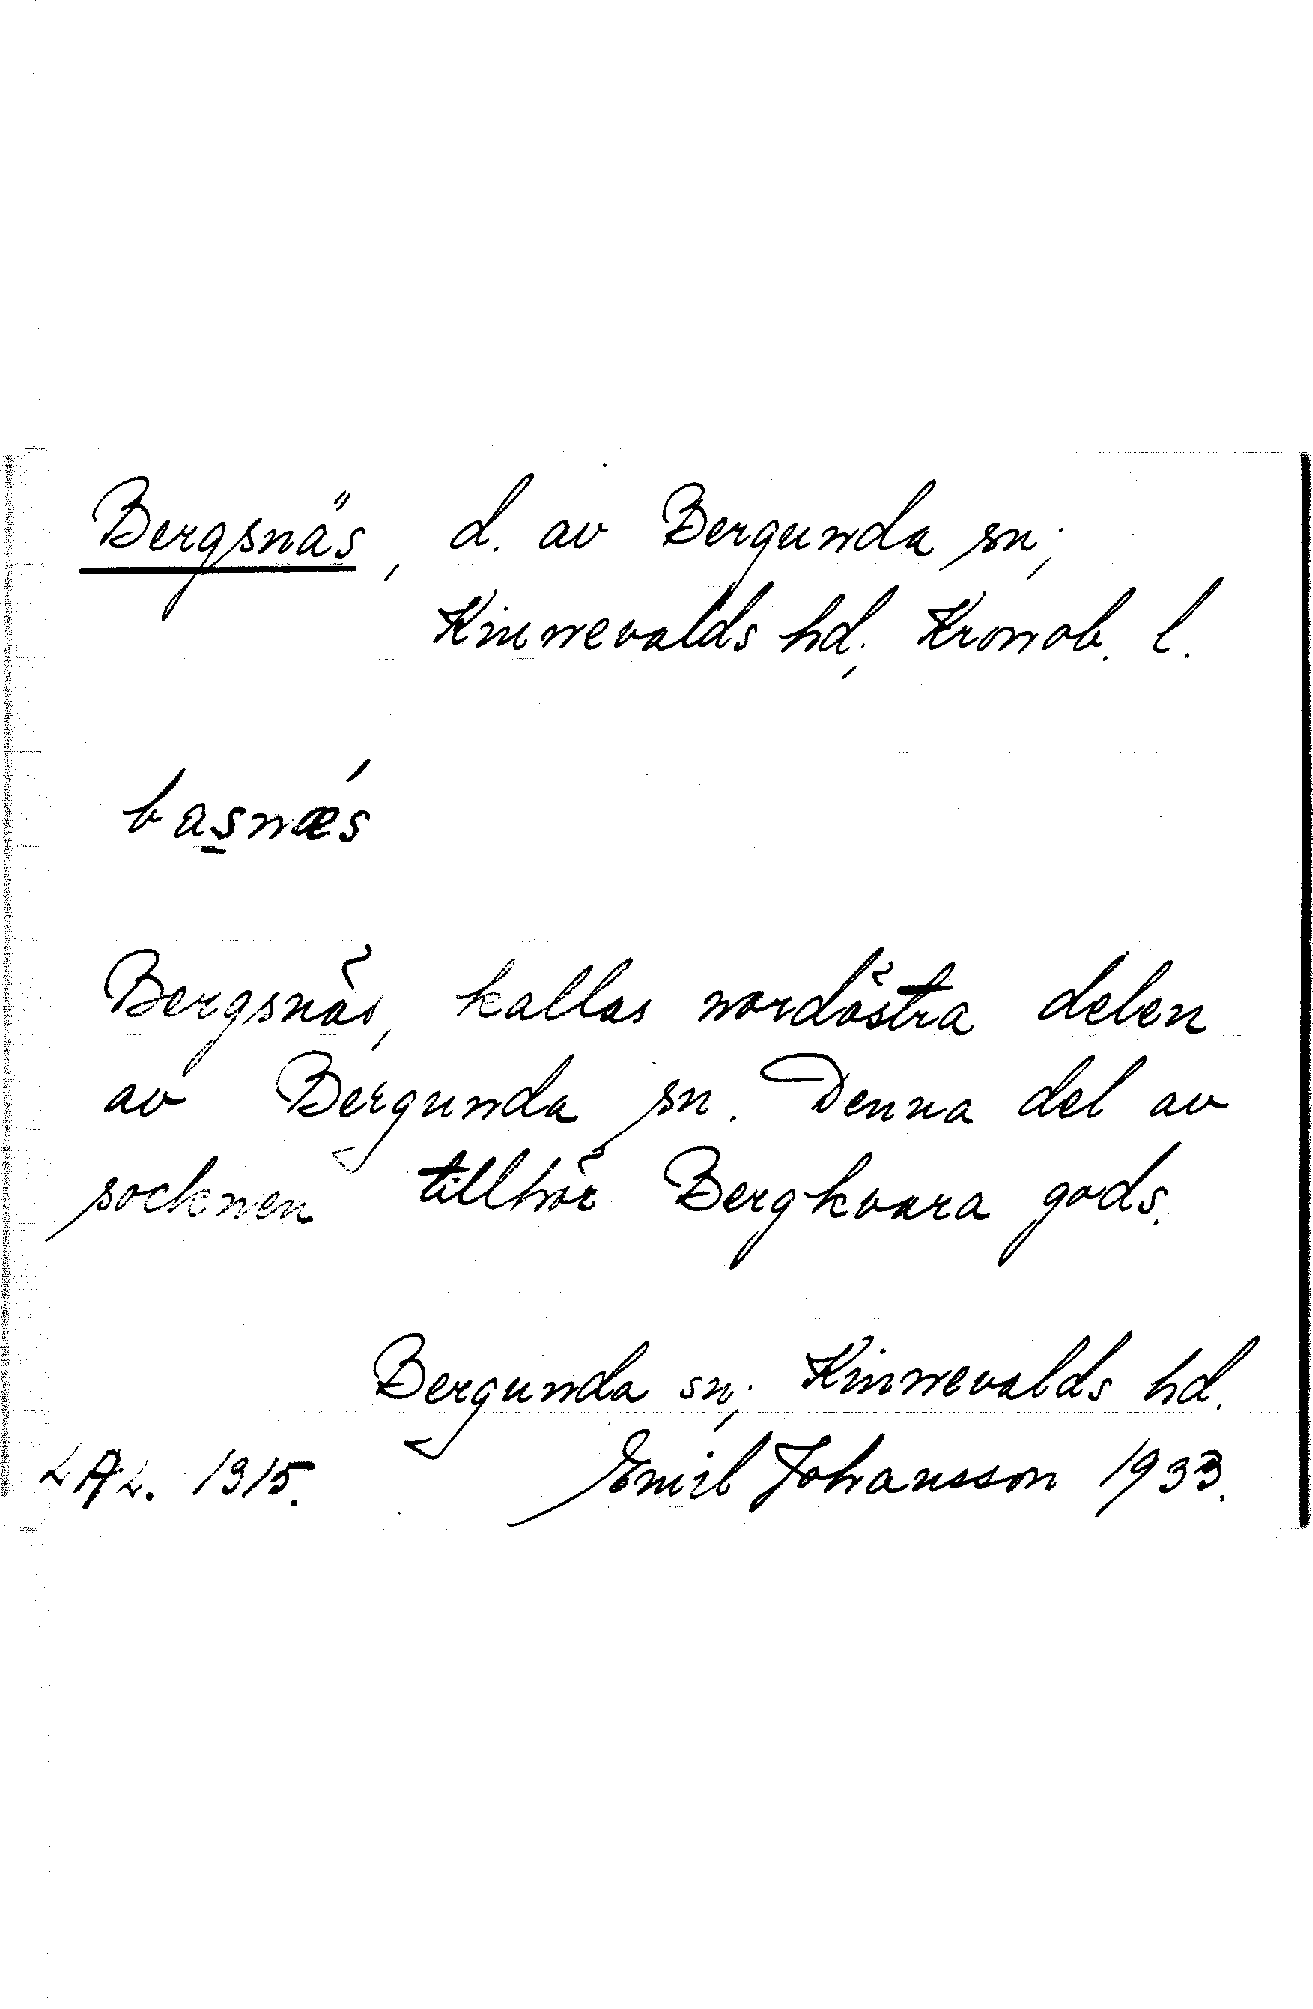 Bergsnäs, d. av Bergunda sn;
Kinnevalds hd; Kronob. l.
bas̲nǽs
Bergsnäs, kallas nordöstra delen
av Bergunda sn. Denna del av
socknen tillhör Bergkvara gods.
Bergunda sn; Kinnevalds hd.
LAL. 1315. Emil Johansson 1933.